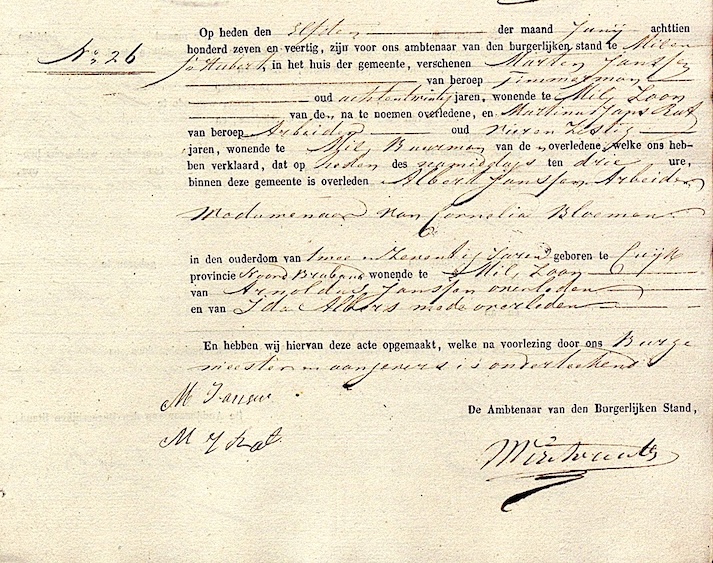 Op heden den elfden der maand Junij achttien
No 26
honderd zeven en veertig, zijn voor ons ambtenaar van den burgerlijken stand te Mill en
St Hubert in het huis der gemeente, verschenen Marten Janssen
van beroep Timmerman
oud achtentwintig jaren, wonende te Mill Zoon
van de, na te noemen overledene, en Martinus Jans Rat
van beroep Arbeider oud vier en Zestig
jaren, wonende te Mill Buurman van de overledene, welke ons heb-
ben verklaard, dat op heden des namiddags ten drie ure,
binnen deze gemeente is overleden Albert Janssen Arbeider
Weduwenaar van Cornelia Bloemen
in den ouderdom van twee en Zeventig Jaren geboren te Cuijk
provincie Noord Braband wonende te Mill Zoon
van Arnoldus Janssen overleden
en van Ida Albers mede overleden
En hebben wij hiervan deze acte opgemaakt, welke na voorlezing door ons Burge
meester en aangevers is onderteekend
M Jansen
De Ambtenaar van den Burgerlijken Stand,
M J Rat